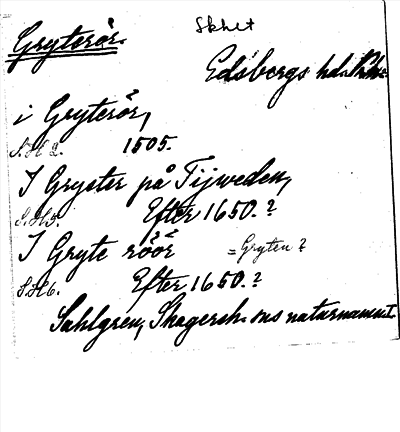 Skhet
Gryterör.
Edsbergs hd.
i Gryterör,
S.H 2. 1505.
I Gryster på Tijweden,
S.H5. Efter 1650.?
I Gryte röör = Gryten?
S.H6. Efter 1650.?
Sahlgren, Skagersh.-ons naturnamn I.